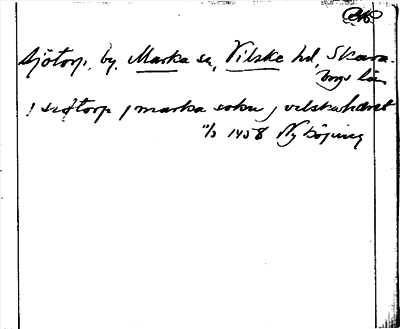 Sjötorp, by. Marka sn, Vilske hd, Skara-
borgs län
i siøtorp i marka sokn j vilskahæret
11/3 1458 Nyköping